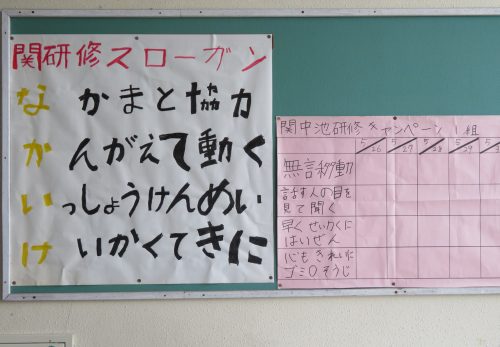 関研修スローガン
な かまと協力
か んがえて動く
い っしょうけんめい
け いかくてきに
関中池研修キャンペーン 1組
5/26 5/27 5/28 5/29
無言移動
話す人の目を
見て聞く
早くせいかくに
はいぜん
心もきれいに
ゴミ0そうじ